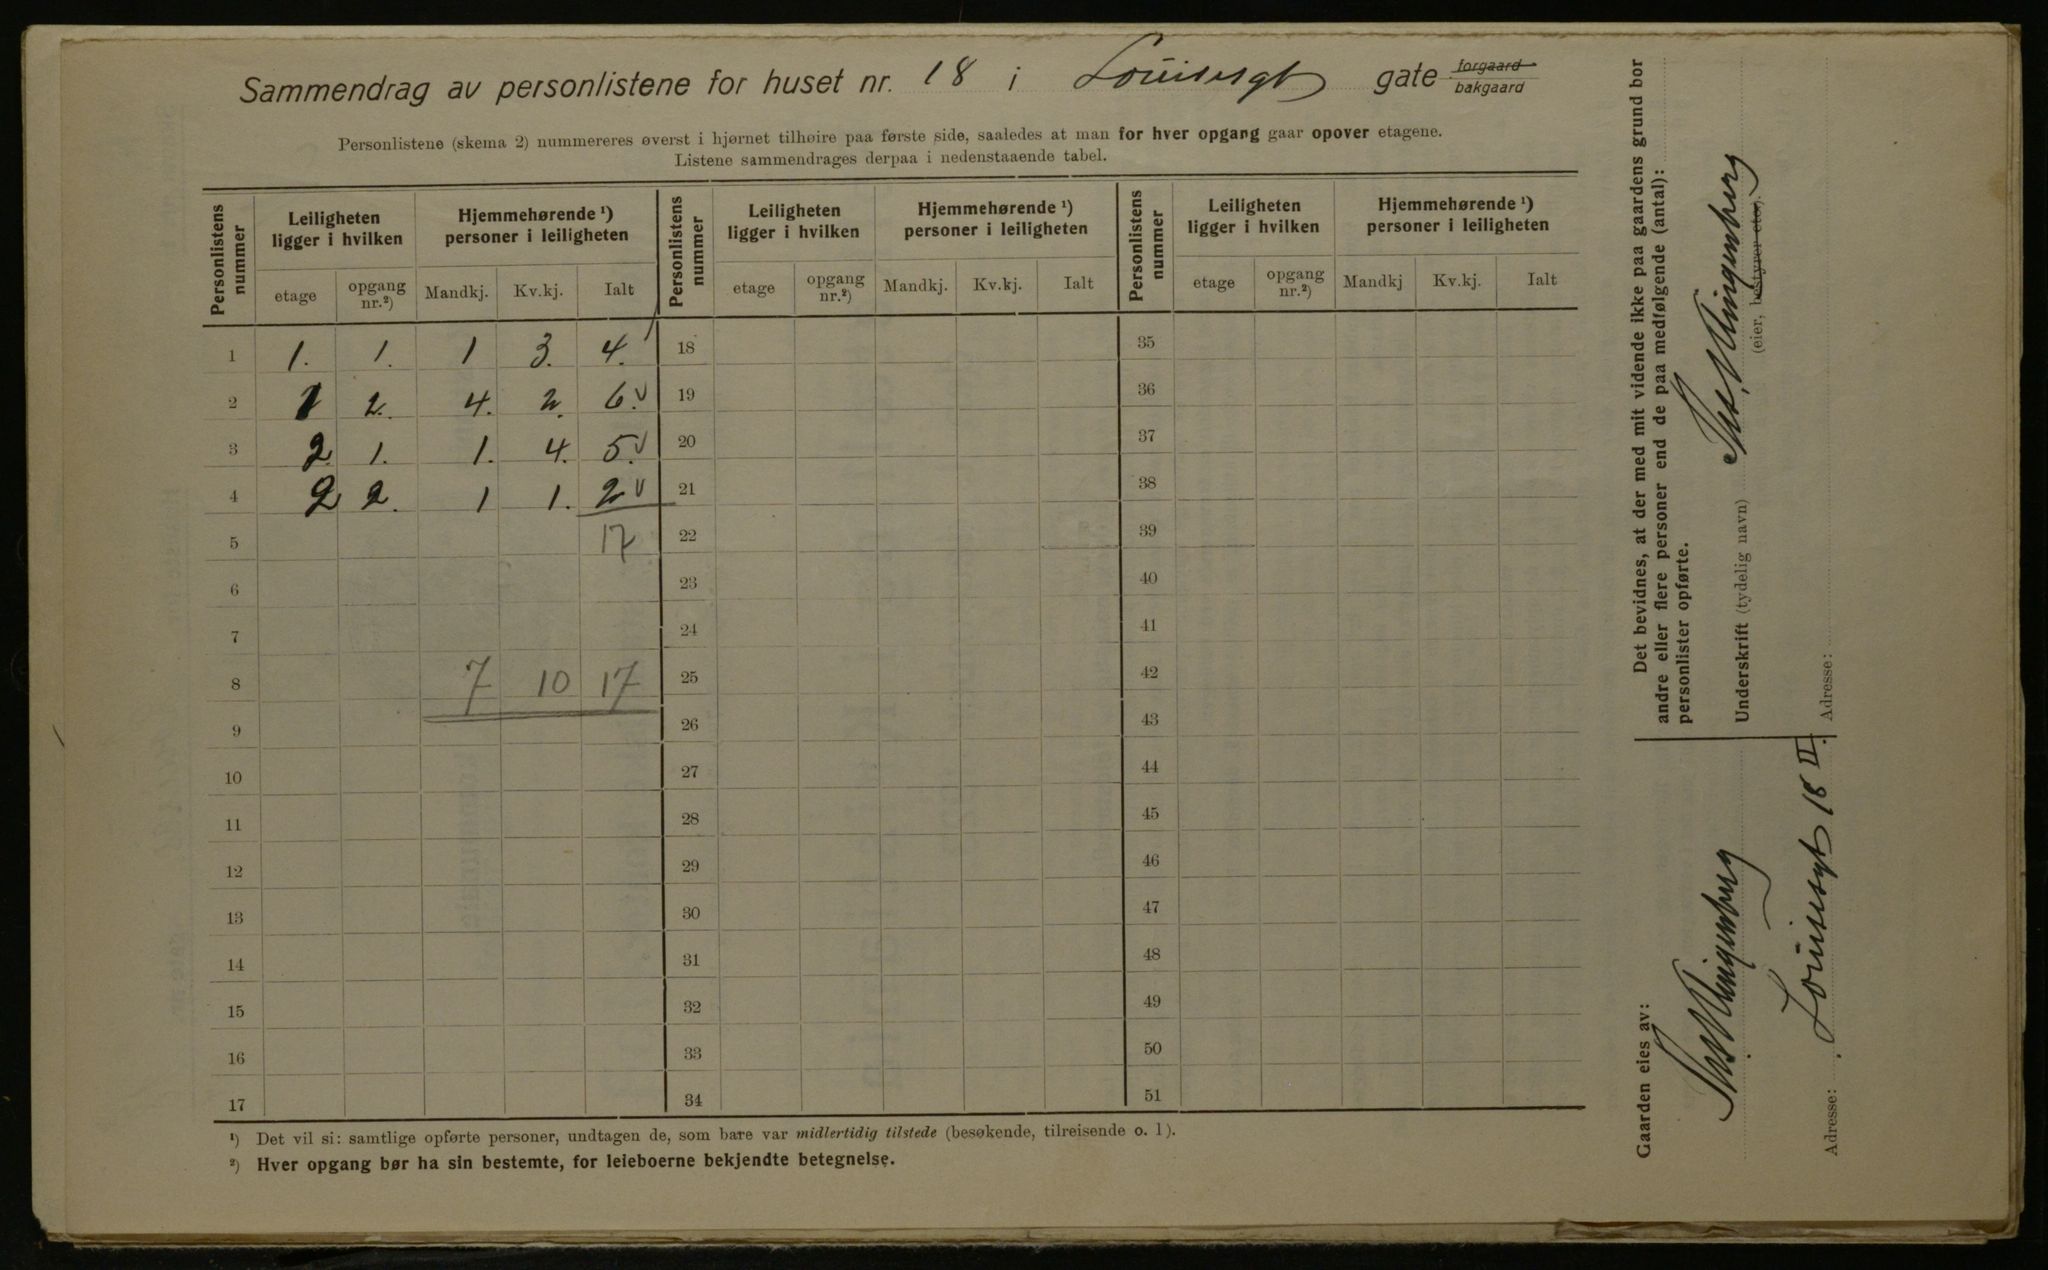 Sammendrag av personlistene for huset nr. 18 i Louisesgt gate forgaard bakgaard
Personlistene (skema 2) nummereres øverst i hjørnet tilhøire paa første side, saaledes at man for hver opgang gaar opover etagene.
Listene sammendrages derpaa i nedenstaaende tabel.
Personlistens nummer Leiligheten ligger i hvilken Hjemmehørende ¹) personer i leiligheten Personlistens nummer Leiligheten ligger i hvilken Hjemmehørende ¹) personer i leiligheten Personlistens nummer Leiligheten ligger i hvilken Hjemmehørende ¹) personer i leiligheten
etage opgang nr.²) Mandkj. Kv.kj. Ialt etage opgang nr.²) Mandkj. Kv.kj. Ialt etage opgang nr.²) Mandkj Kv.kj. Ialt
1 1. 1. 1 3. 4. 18 35
2 1 2. 4. 2. 6. 19 36
3 2. 1. 1. 4. 5. 20 37
4 2 2. 1 1. 2 21 38
5 17 22 39
6 23 40
7 24 41
8 7 10 17 25 42
9 26 43
10 27 44
11 28 45
12 29 46
13 30 47
14 31 48
15 32 49
16 33 50
17 34 51
¹) Det vil si: samtlige opførte personer, undtagen de, som bare var midlertidig tilstede (besøkende, tilreisende o. l).
²) Hver opgang bør ha sin bestemte, for leieboerne bekjendte betegnelse.
Det bevidnes, at der med mit vidende ikke paa gaardens grund bor
andre eller flere personer end de paa medfølgende (antal):
personlister opførte.
Underskrift (tydelig navn) Klingenberg
(eier, bestyrer etc.).
Adresse:
Gaarden eies av:
Klingenberg
Adresse: Louisesgt 18 II.